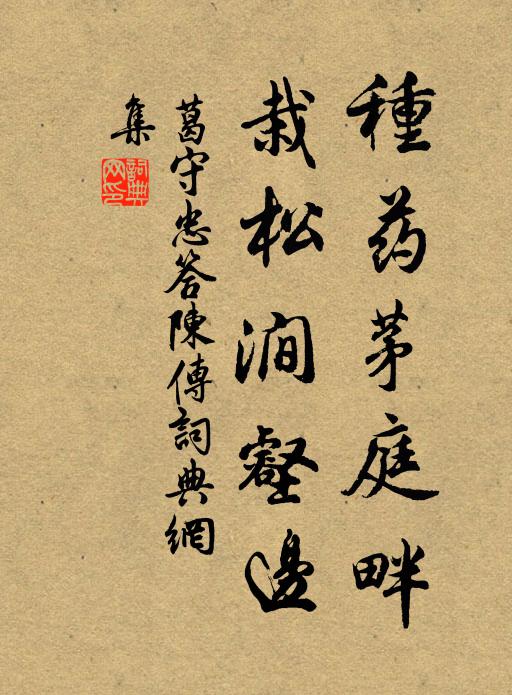 種药茅庭畔
栽松澗壑邊
葛守忠答陳傅詞典網
集
詞典网印